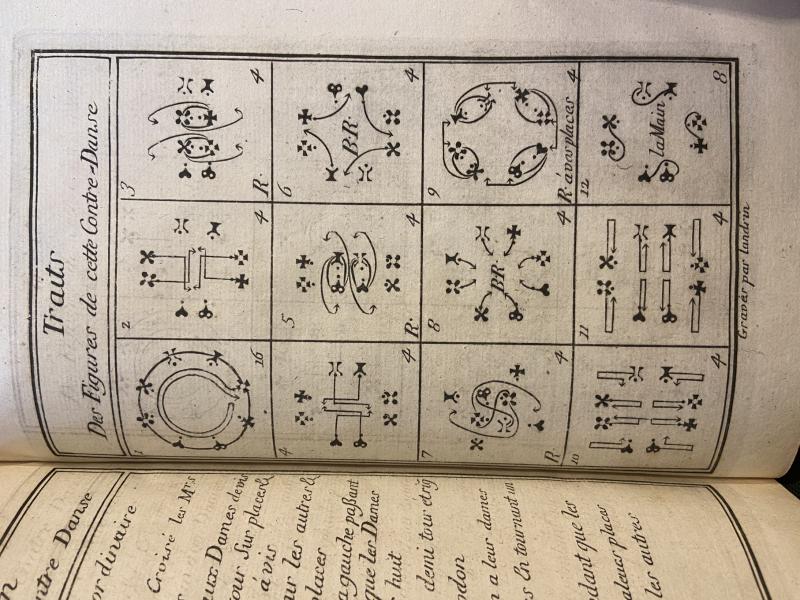 ntre Danse
ordinaire
Croisé les Mrs
ux Dames devis
our Sur places&
à vis
ur les autres&
places
a gauche paßant
que les Dames
huit
demi tour
odon
n a leur dames
s En tournant un
ndant que les
aleurs places
les autres
Traits
Des Figures de cette Contre-Danse
1 2 3
16 4 R. 4
4 5 6
B.R
4 R. 4 4
7 8 9
BR
R 4 4 R à vos places 4
10 11 12
la Main
4 4 8
Gravés par Landrin